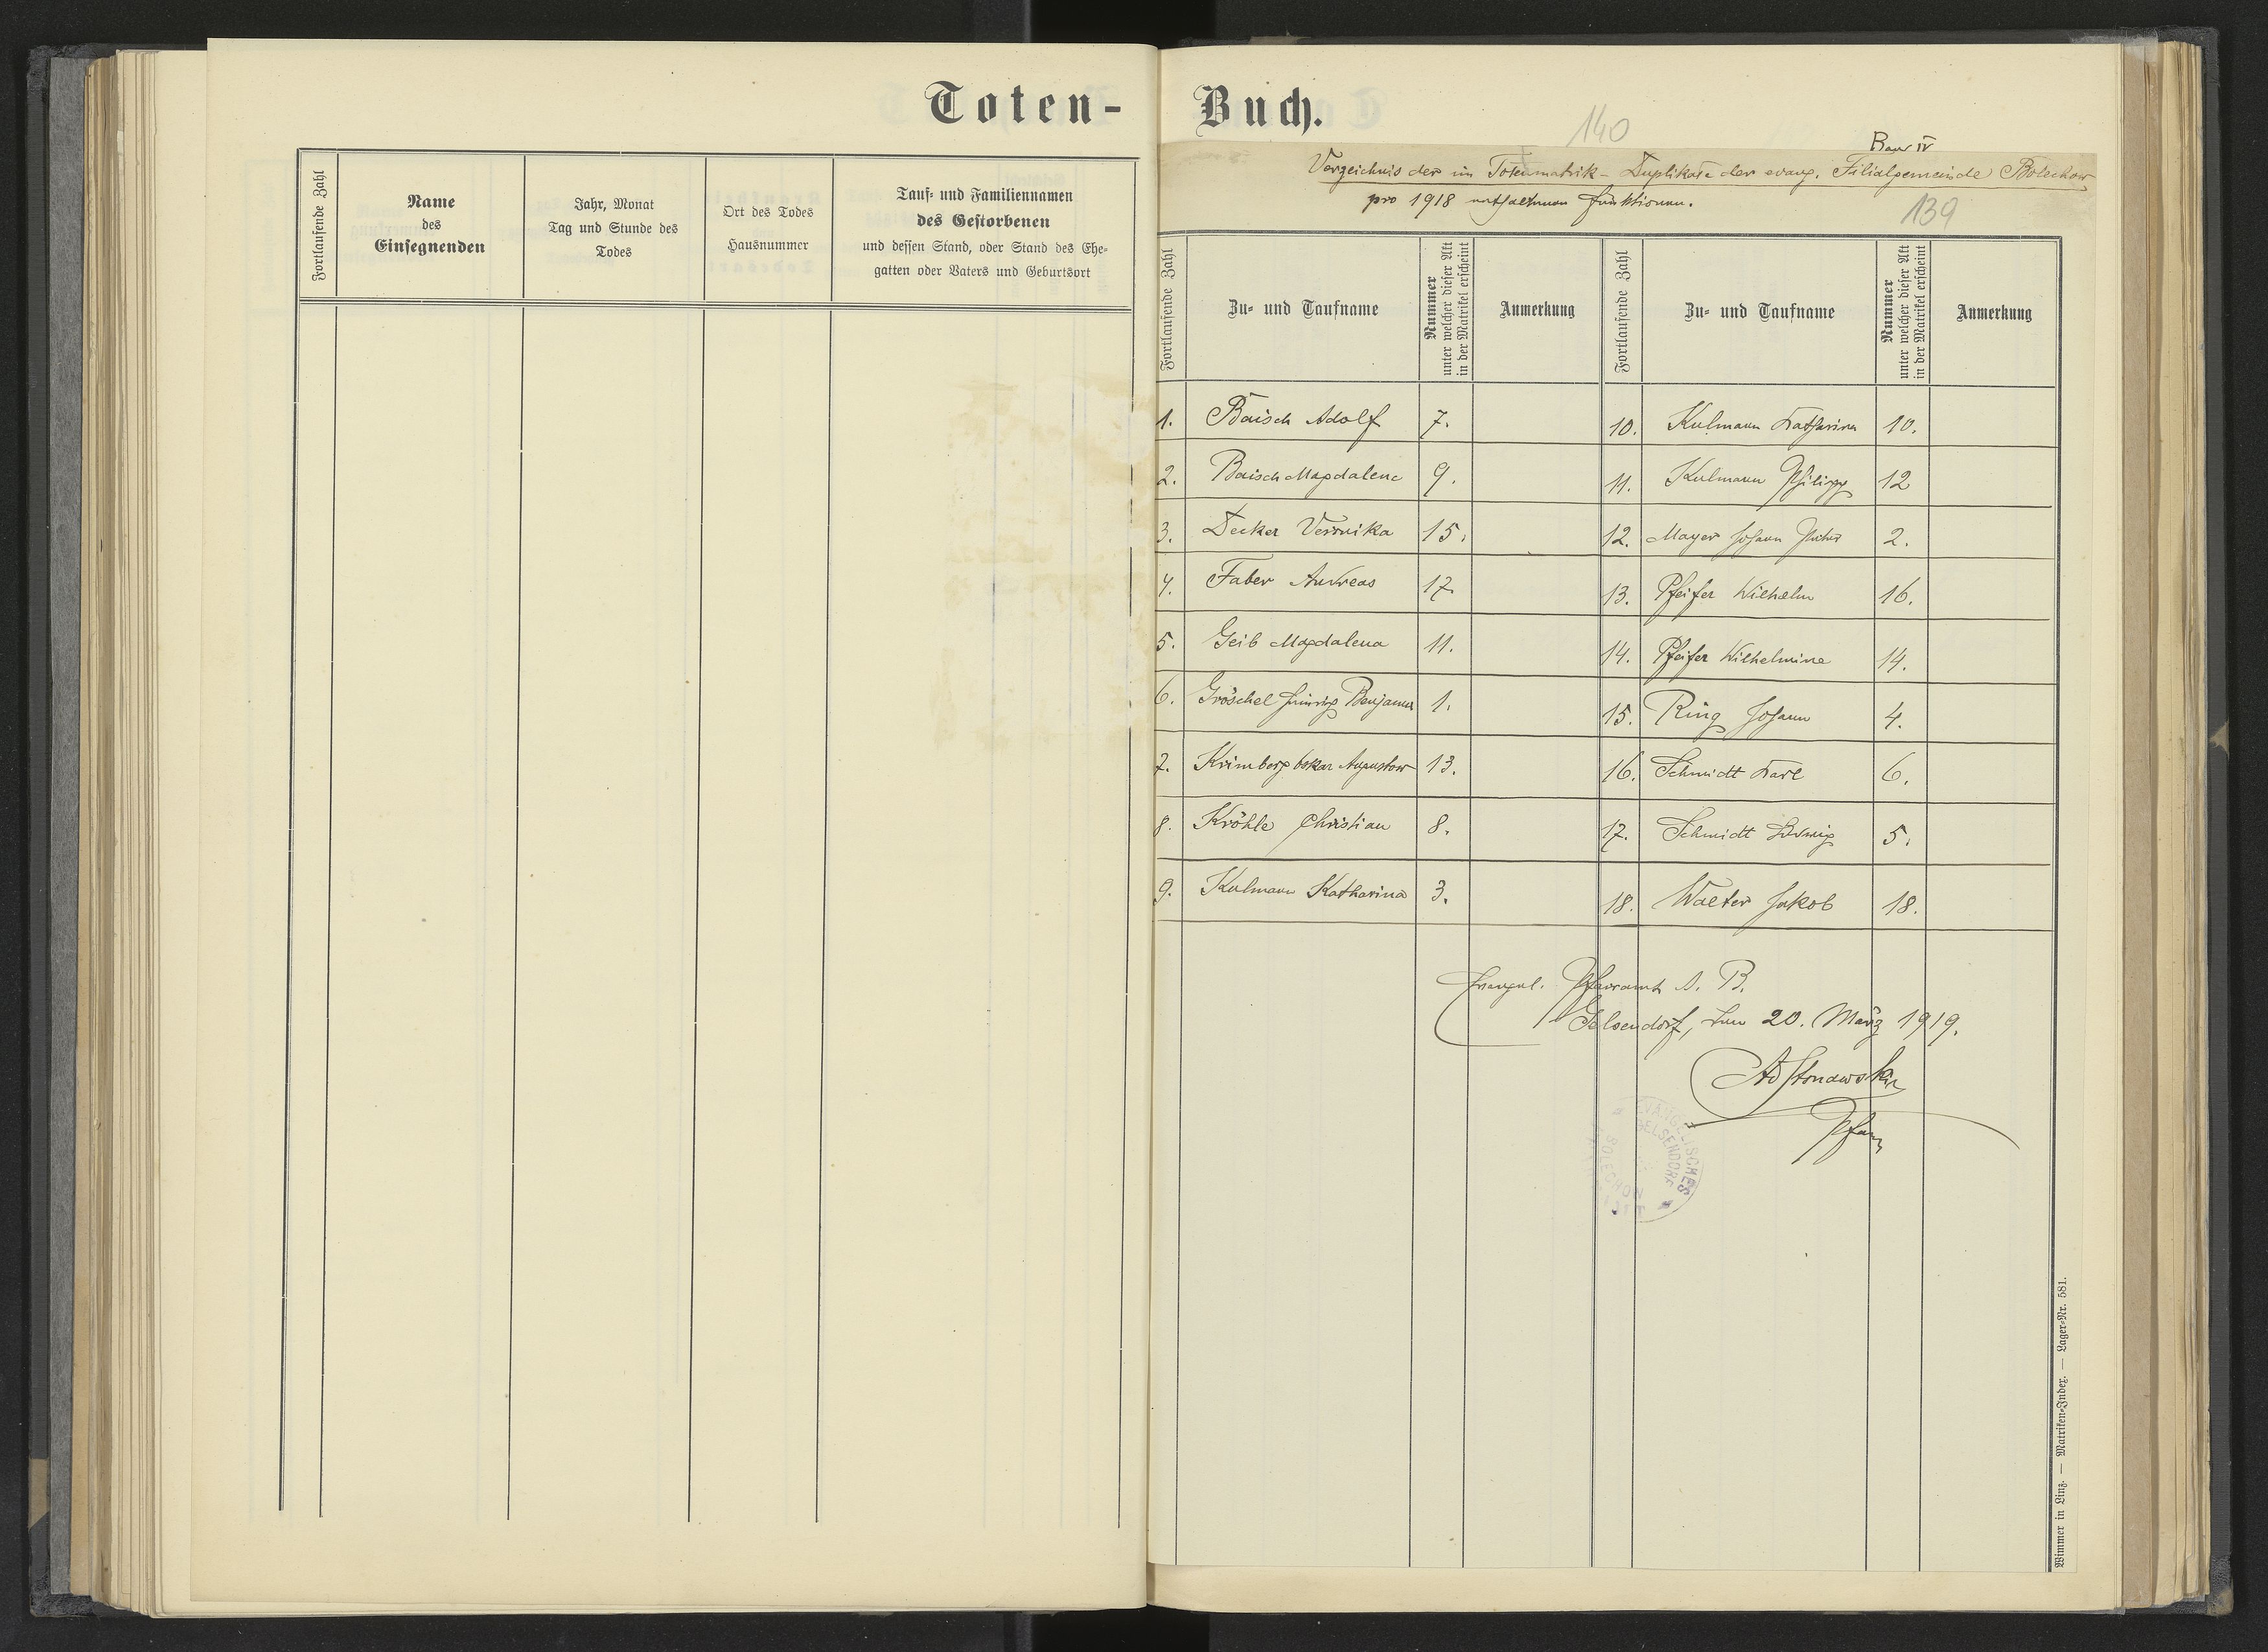 Toten-
Fortlaufende Zahl
Name
des
Einsegnenden
Jahr, Monat
Tag und Stunde des
Todes
Ort des Todes
Hausnummer
Tauf- und Familiennamen
des Gestorbenen
und dessen Stand, oder Stand des Ehe-
gatten oder Vaters und Geburtsort
Buch.
140
Verzeichnis der im Totenmatrik-Duplikate der evang. Filialgemeinde Bolechow
pro 1918 enthaltenen Funktionen.
139
Fortlaufende Zahl
Zu- und Taufname
Nummer
unter welcher dieser Akt
in der Matrikel erscheint
Anmerkung
Fortlaufende Zahl
Zu- und Taufname
Nummer
unter welcher dieser Akt
in der Matrikel erscheint
Anmerkung
1. Baisch Adolf 7.
2. Baisch Magdalene 9.
3. Decker Veronika 15.
4. Faber Andreas 17.
5. Geib Magdalena 11.
6. Gröschel Heinrich Benjamin 1.
7. Krimberg Oskar 13.
8. Kröhle Christian 8.
9. Kulmann Katharina 3.
10. Kulmann Katharina 10.
11. Kulmann Philipp 12
12. Mayer Johann 2.
13. Pfeifer Wilhelm 16.
14. Pfeifer Wilhelmine 14.
15. Ring Johann 4.
16. Schmidt Karl 6.
17. Schmidt Ludwig 5.
18. Walter Jakob 18.
Evangel. Pfarramt A. B.
Gelsendorf, den 20. März 1919.
Pfarrer
EVANGELISCHES
GELSENDORF
BOLECHOW
Wimmer in Linz. — Matriken-Index. — Lager-Nr. 581.